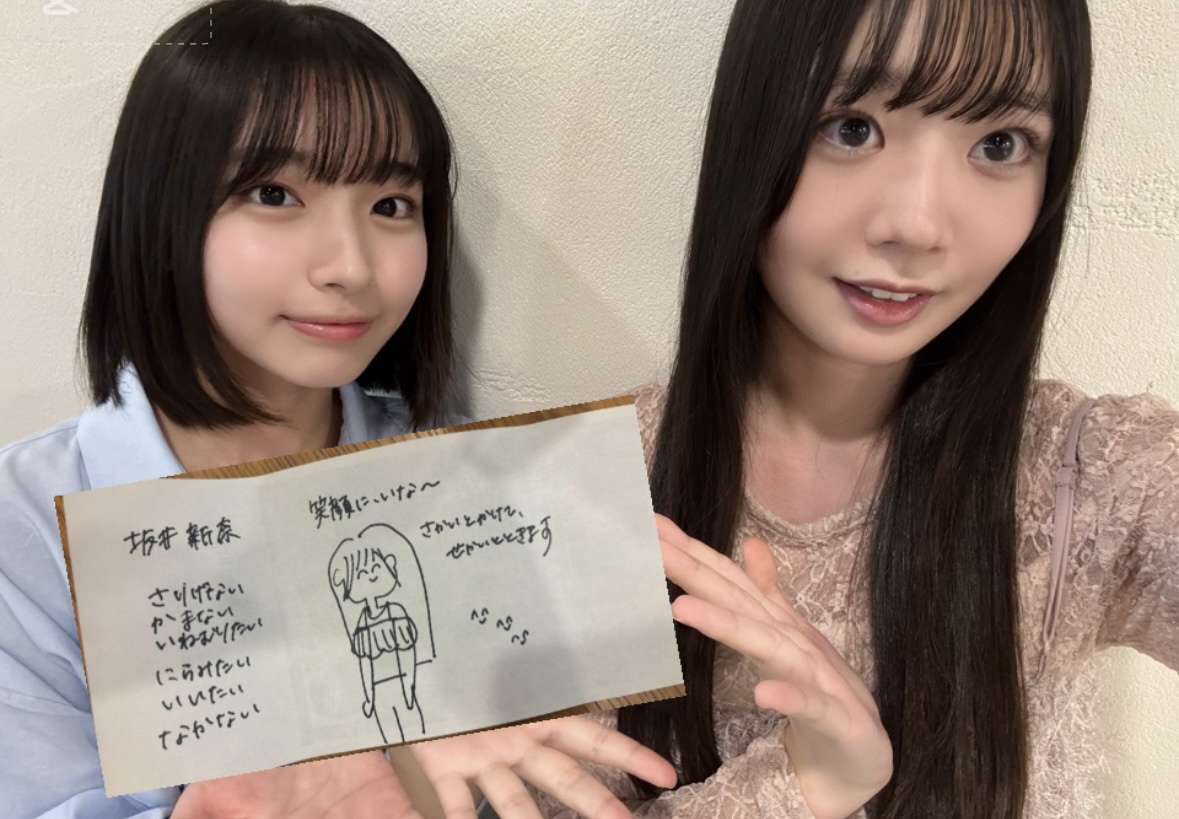 坂井 新奈
さりげない
かまない
いねむりたい
にらみたい
いいたい
なかない
笑顔に、いな〜
さかいとかけて、
せかいとときます